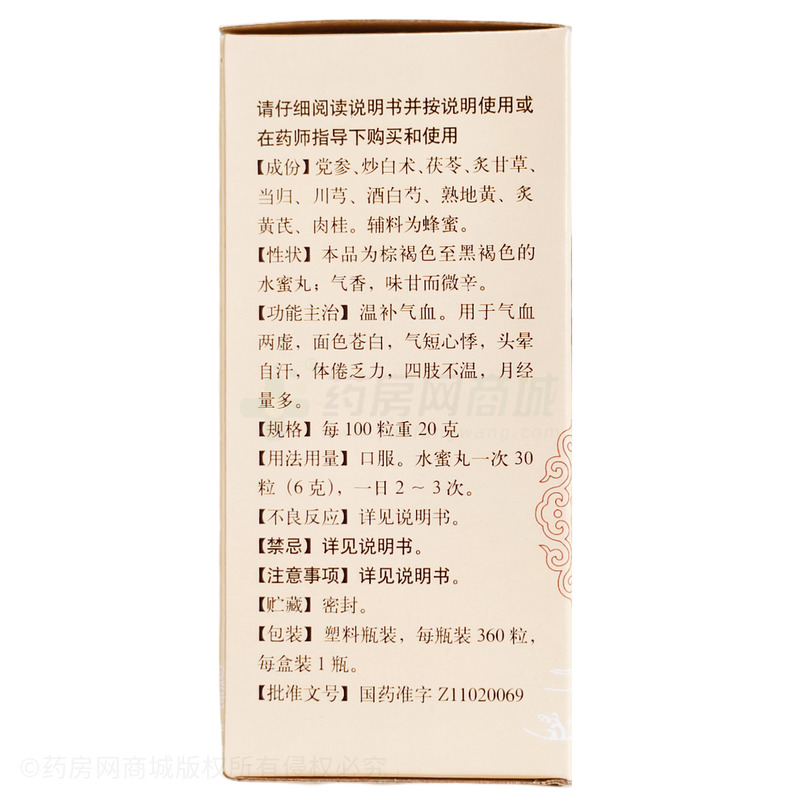 请仔细阅读说明书并按说明使用或
在药师指导下购买和使用
【成份】党参、炒白术、茯苓、炙甘草、
当归、川芎、酒白芍、熟地黄、炙
黄芪、肉桂。辅料为蜂蜜。
【性状】本品为棕褐色至黑褐色的
水蜜丸；气香，味甘而微辛。
【功能主治】温补气血。用于气血
两虚，面色苍白，气短心悸，头晕
自汗，体倦乏力，四肢不温，月经
量多。
【规格】每100粒重20克
【用法用量】口服。水蜜丸一次30
粒（6克），一日2～3次。
【不良反应】详见说明书。
【禁忌】详见说明书。
【注意事项】详见说明书。
【贮藏】密封。
【包装】塑料瓶装，每瓶装360粒，
每盒装1瓶。
【批准文号】国药准字Z11020069
药房网商城
©药房网商城版权所有侵权必究